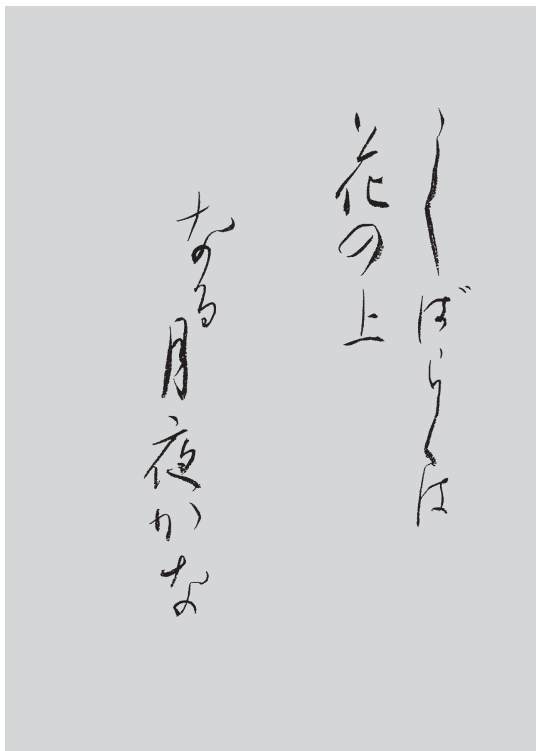 しばらくは
花の上
なる月夜かな